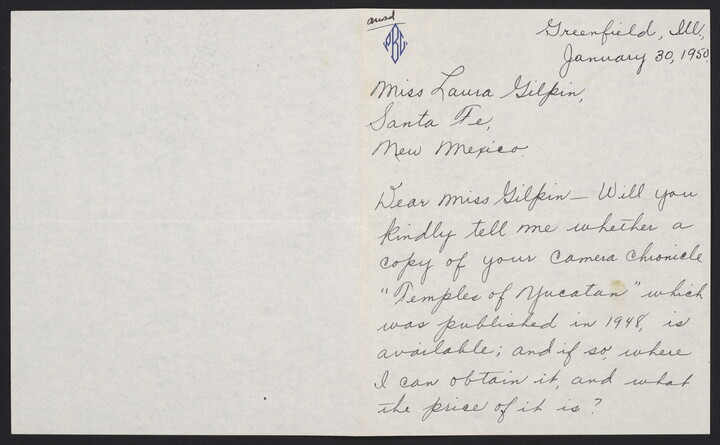 answd
PBC
Greenfield, Ill,
January 30, 1950.
Miss Laura Gilpin,
Santa Fe,
New Mexico.
Dear Miss Gilpin — Will you
kindly tell me whether a
copy of your camera chronicle
"Temples of Yucatan" which
was published in 1948, is
available; and if so, where
I can obtain it, and what
the price of it is?